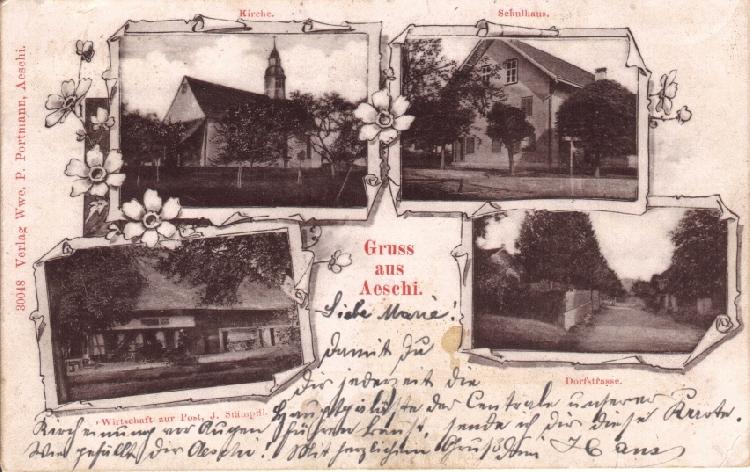 Kirche.
Schulhaus.
30048 Verlag Wwe. P. Portmann, Aeschi.
Gruss
aus
Aeschi.
Wirtschaft zur Post, J.
Dorfstrasse.
Liebe Marie!
Damit du
dir jederzeit die
der Centrale unserer
Kirch vor Augen führen kannst, sende ich dir diese Karte.
Wie gefällt dir Aeschi! Mit herzlichem Gruß dein Hans